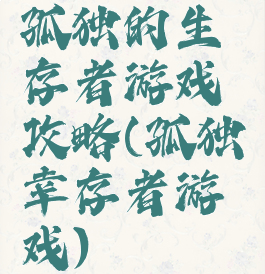 孤独的生
存者游戏
攻略(孤独
幸存者游
戏)